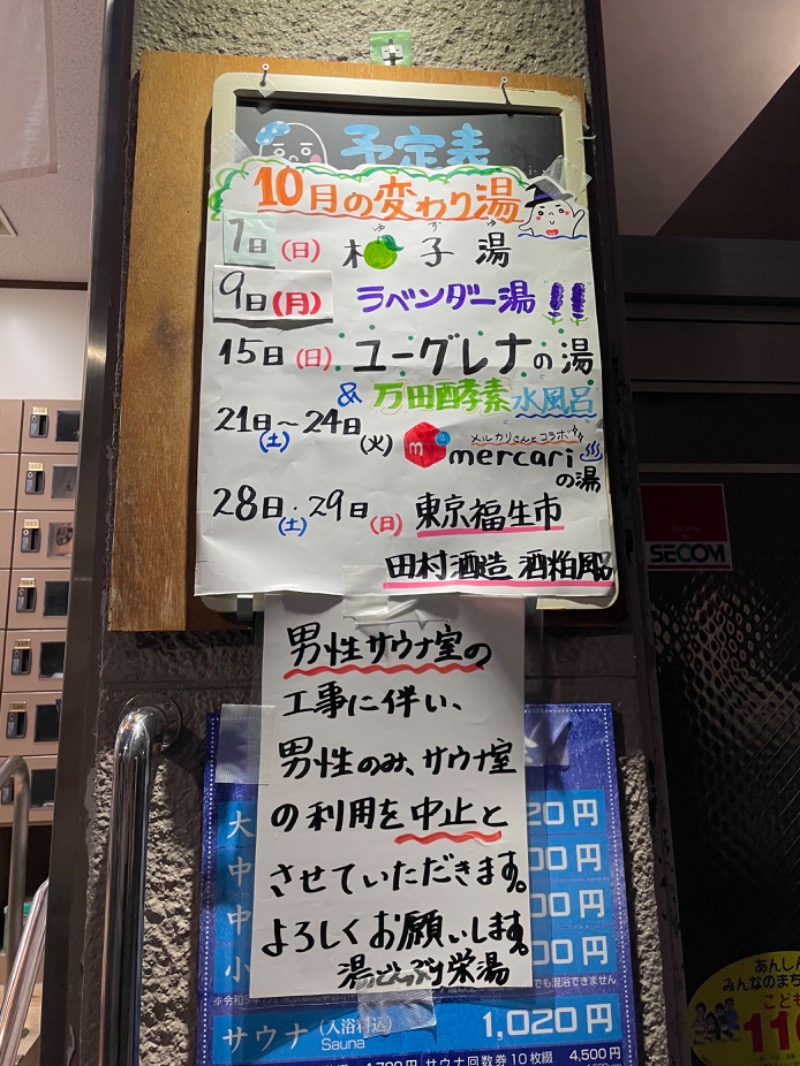 予定表
10月の変わり湯
7日(日) 柚子湯
ゆず ゆ
9日(月) ラベンダー湯!!
15日(日) ユーグレナの湯
& 万田酵素水風呂
21日(土)～24日(火)
メルカリさんとコラボ
mercari
の湯
28日(土)・29日(日) 東京福生市
田村酒造 酒粕風呂
男性サウナ室の
工事に伴い、
男性のみ、サウナ室
の利用を中止と
させていただきます。
よろしくお願いします。
湯どんぶり栄湯
大 20円
中 00円
中 00円
小 00円
でも混浴できません
サウナ(入浴料込) 1,020円
Sauna
サウナ回数券10枚綴 4,500円
SECOM
あんしん
みんなのまち
こども
110